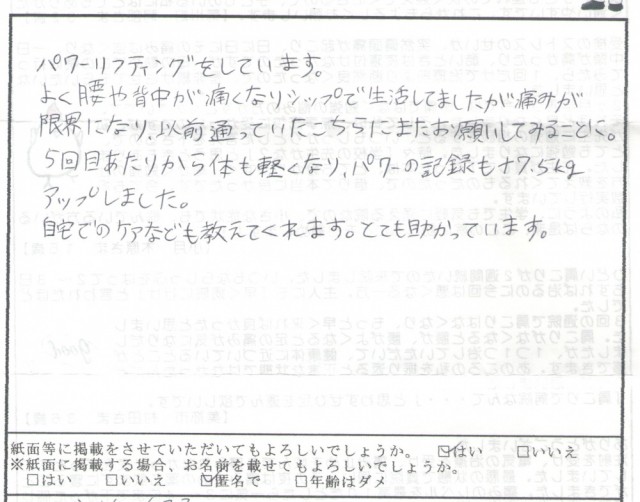 パワーリフティングをしています。
よく腰や背中が痛くなりシップで生活してましたが痛みが
限界になり、以前通っていたこちらにまたお願いしてみることに。
5回目あたりから体も軽くなり、パワーの記録も+7.5kg
アップしました。
自宅でのケアなども教えてくれます。とても助かっています。
紙面等に掲載をさせていただいてもよろしいでしょうか。 ☑はい □いいえ
※紙面に掲載する場合、お名前を載せてもよろしいでしょうか。
□はい □いいえ ☑匿名で □年齢はダメ